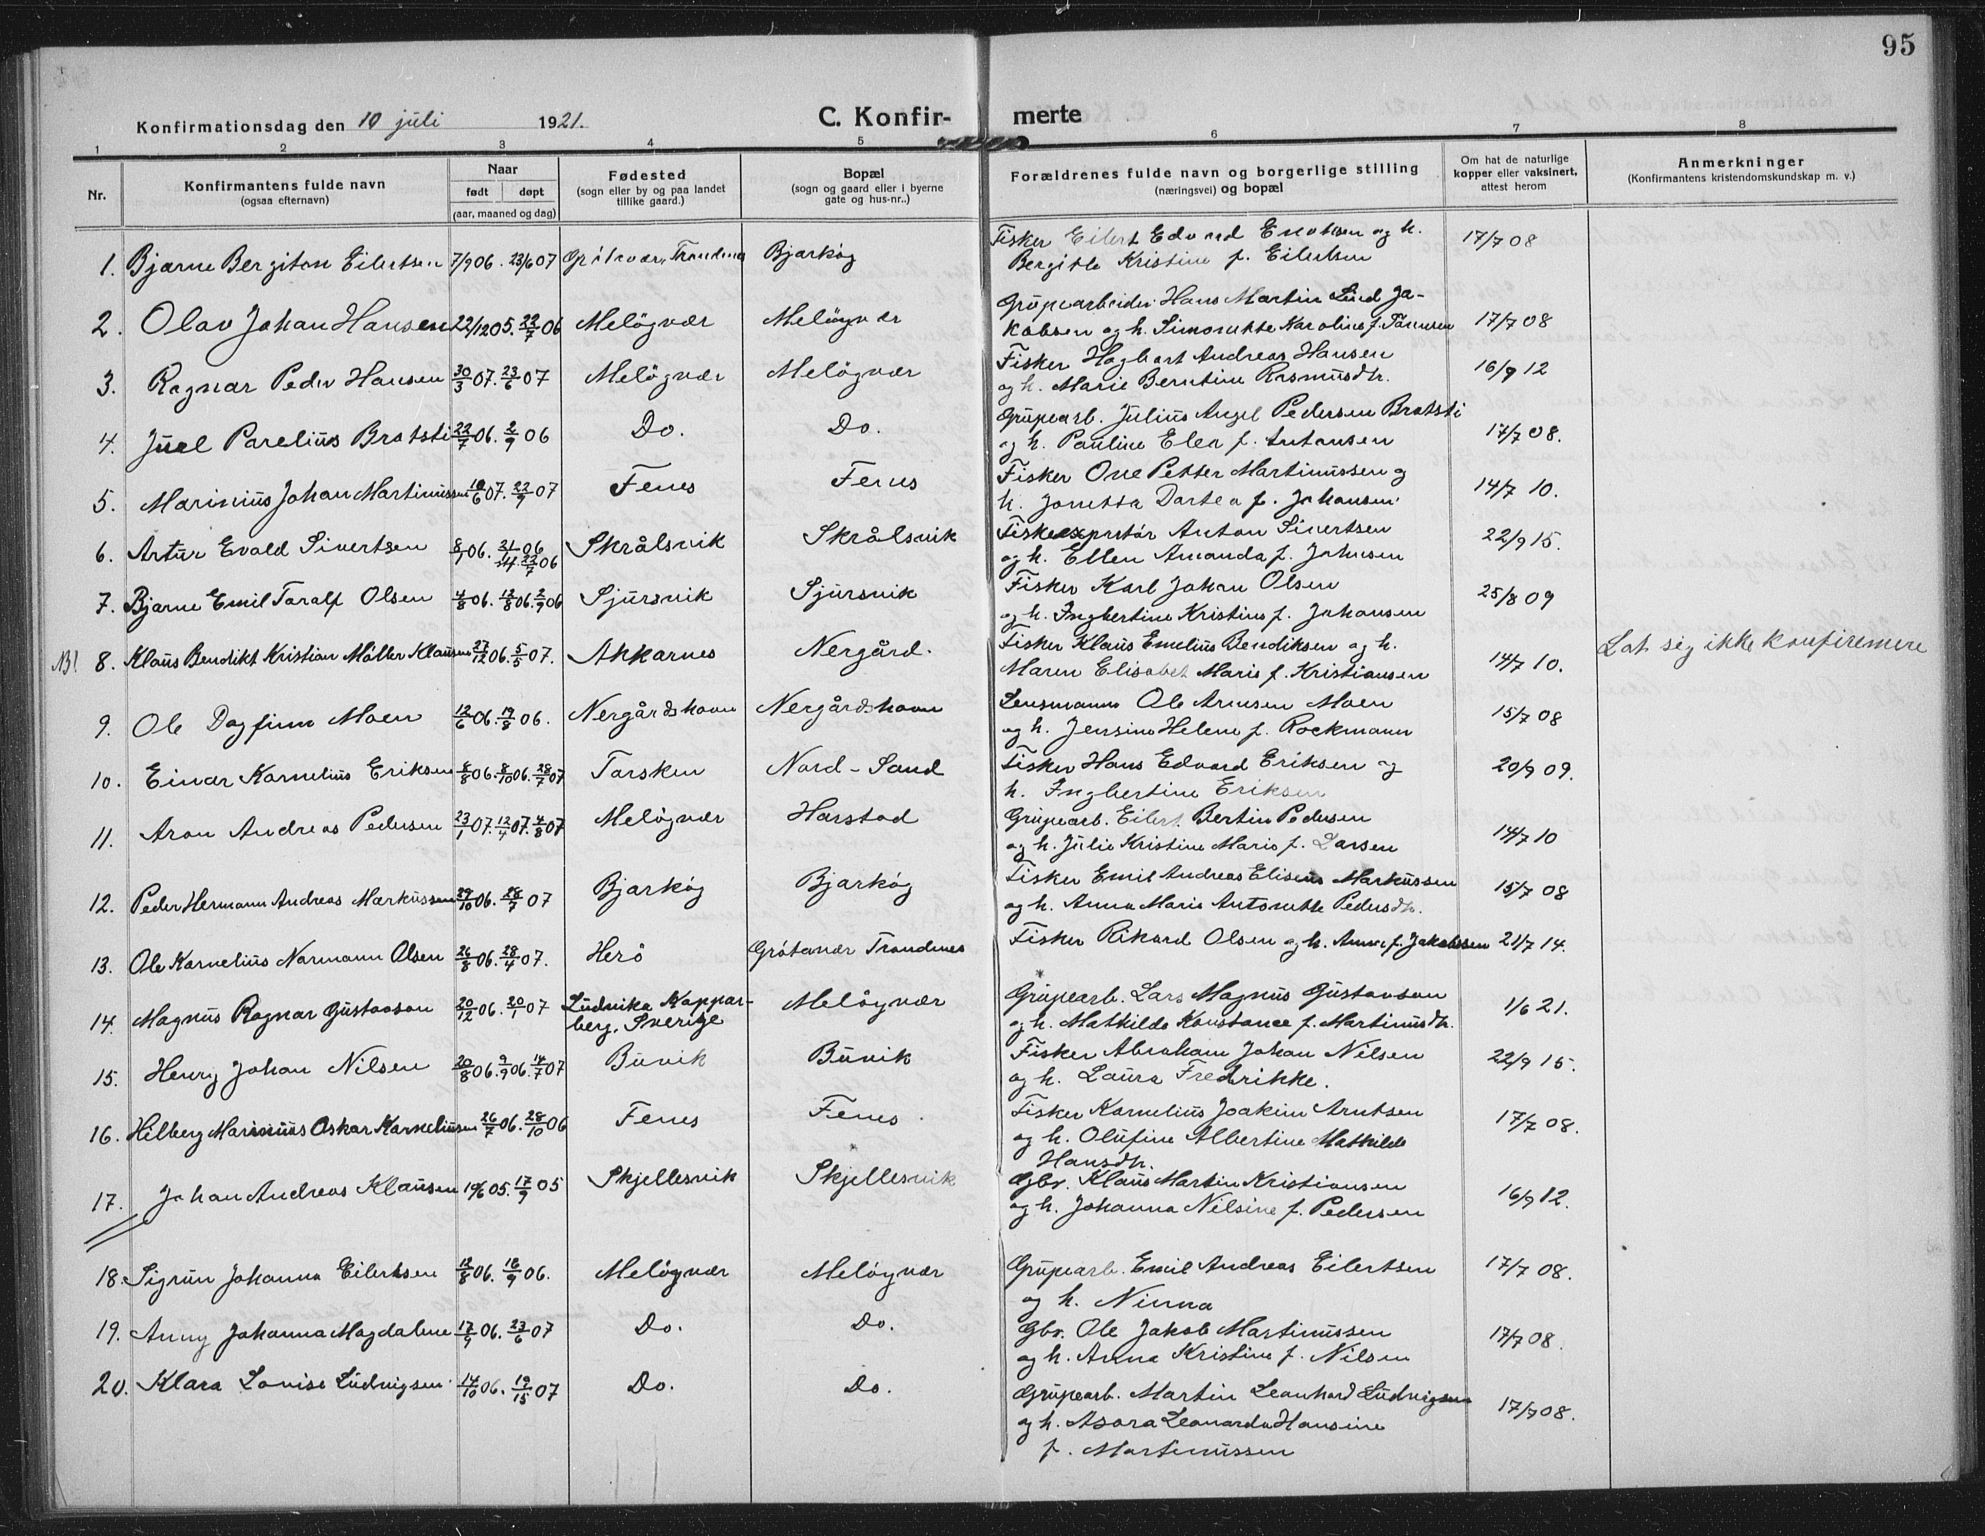 95
Konfirmationsdag den 10 juli 1921. C. Konfir- merte
1 2 3 4 5 6 7 8
Nr. Konfirmantens fulde navn (ogsaa efternavn) Naar født døpt (aar, maaned og dag) Fødested (sogn eller by og paa landet tillike gaard.) Bopæl (sogn og gaard eller i byerne gate og hus-nr..) Forældrenes fulde navn og borgerlige stilling (næringsvei) og bopæl Om hat de naturlige kopper eller vaksinert, attest herom Anmerkninger (Konfirmantens kristendomskundskap m. v.)
1. Bjarne Bergiton Eilertsen 7/9 06. 23/6 07 Grötavær, Trondenes Bjarköy Fisker Eilert Edvard Enoksen og h. 17/7 08
Bergitte Kristine f. Eilertsen
2. Olav Johan Hansen 22/12 05. 22/7 06 Melöyvær Melöyvær Grupearbeider Hans Martin Lind Ja-
kobsen og h. Simonette Karoline f. 17/7 08
3. Ragnar Peder Hansen 30/3 07. 23/6 07 Melöyvær Melöyvær Fisker Hagbart Andreas Hansen 16/9 12
og h. Marie Berntine Rasmusdtr.
4. Juel Parelius Bratsti 22/7 06. 2/9 06 Do. Do. Grupearb. Julius Angel Pedersen Bratsti
og h. Pauline Elea f. Antonsen 17/7 08.
5. Marinius Johan Martinussen 10/6 07. 22/9 07 Fenes Fenes Fisker One Petter Martinussen og
h. Jonetta Dartea f. Johansen 14/7 10.
6. Artur Evald Sivertsen 8/9 06. 21/14 06. 22/7 06 Skrålsvik Skrålsvik Fiskeexprtör Anton Sivertsen 22/9 15.
og h. Ellen Amanda f. Johnsen
7. Bjarne Emil Toralf Olsen 4/8 06. 12/8 06. 2/9 06 Sjursvik Sjursvik Fisker Karl Johan Olsen 25/8 09
og h. Ingbertine Kristine f. Johansen
NB! 8. Klaus Bendikt Kristian Möller Klausen 27/12 06. 5/5 07. Akkarnes Nergård. Fisker Klaus Emelius Bendiksen og h. Lot sig ikke konfiremere
Maren Elisabet Marie f. Kristiansen 14/7 10.
9. Ole Dagfinn Moen 12/6 06. 19/8 06. Nergårdshavn Nergårdshavn Lensmann Ole Arnesen Moen 15/7 08
og h. Jensine Helene f. Rockmann
10. Einar Kornelius Eriksen 8/8 06. 8/10 06. 28/7 07 Torsken Nord-Sand Fisker Hans Edvard Eriksen og 20/9 09.
h. Ingbertine Eriksen
11. Aron Andreas Pedersen 23/1 07. 12/4 07. 4/8 07 Melöyvær Harstad Grupearb. Eilert Bertin Pedersen
og h. Julie Kristine Marie f. Larsen 14/7 10
12. Peder Hermann Andreas Markussen 29/10 06. 28/7 07 Bjarköy Bjarköy Fisker Emil Andreas Eliseus Markussen 15/7 08
og h. Anna Marie Antonette Pedersdtr.
13. Ole Kornelius Normann Olsen 26/8 06. 28/4 07. Herö Grötavær Trondenes Fisker Rikard Olsen og h. Anna f. Jakobsen 21/7 14.
14. Magnus Ragnar Gustavson 20/12 06. 20/1 07 Ludvika Koppar- Melöyvær Grupearb. Lars Magnus Gustavson 1/6 21.
berg, Sverige og h. Mathilde Konstance f. Martinusdtr.
15. Henry Johan Nilsen 20/8 06. 9/9 06. 14/7 07 Buvik Buvik Fisker Abraham Johan Nilsen 22/9 15.
og h. Laura Fredrikke.
16. Hilberg Marinius Oskar Karneliusen 26/7 06. 28/10 06 Fenes Fenes. Fisker Kornelius Joakim Arntsen 17/7 08.
og h. Olufine Albertine Mathilde
Hansdtr.
17. Johan Andreas Klausen 19/6 05. 17/9 05 Skjellesvik Skjellesvik Gbr. Klaus Martin Kristiansen 16/9 12.
og h. Johanna Nilsine f. Pedersen
18. Sigrun Johanna Eilertsen 12/8 06. 16/9 06. Melöyvær Melöyvær Grupearb. Emil Andreas Eilertsen 17/7 08.
og h. Ninna
19. Anny Johanna Magdalene 17/9 06. 23/6 07 Do. Do. Gbr. Ole Jakob Martinussen 17/7 08.
og h. Anna Kristine f. Nilsen
20. Klara Lovise Ludvigsen 14/10 06. 19/15 07 Do. Do. Grupearb. Martin Leonhard Ludvigsen 17/7 08.
og h. Asora Leonarda Hansine
f. Martinussen